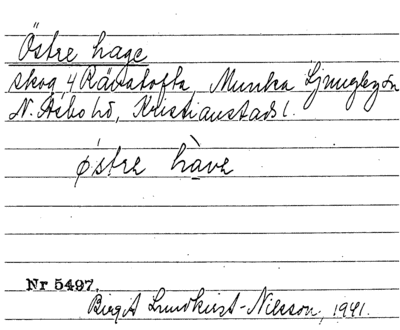 Östre hage
skog, 4 Rävatofta, Munka Ljungby sn
N. Åsbo hd, Kristianstads l.
østre hàve
Nr 5497.
Birgit Lundkvist-Nilsson, 1941.